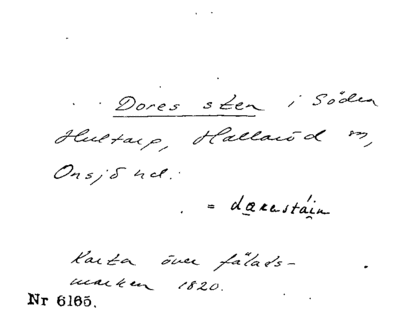 Dores sten i Södra
Hultarp, Hallaröd sn,
Onsjö hd.
= darestáin
Karta över fälads-
marken 1820.
Nr 6165.